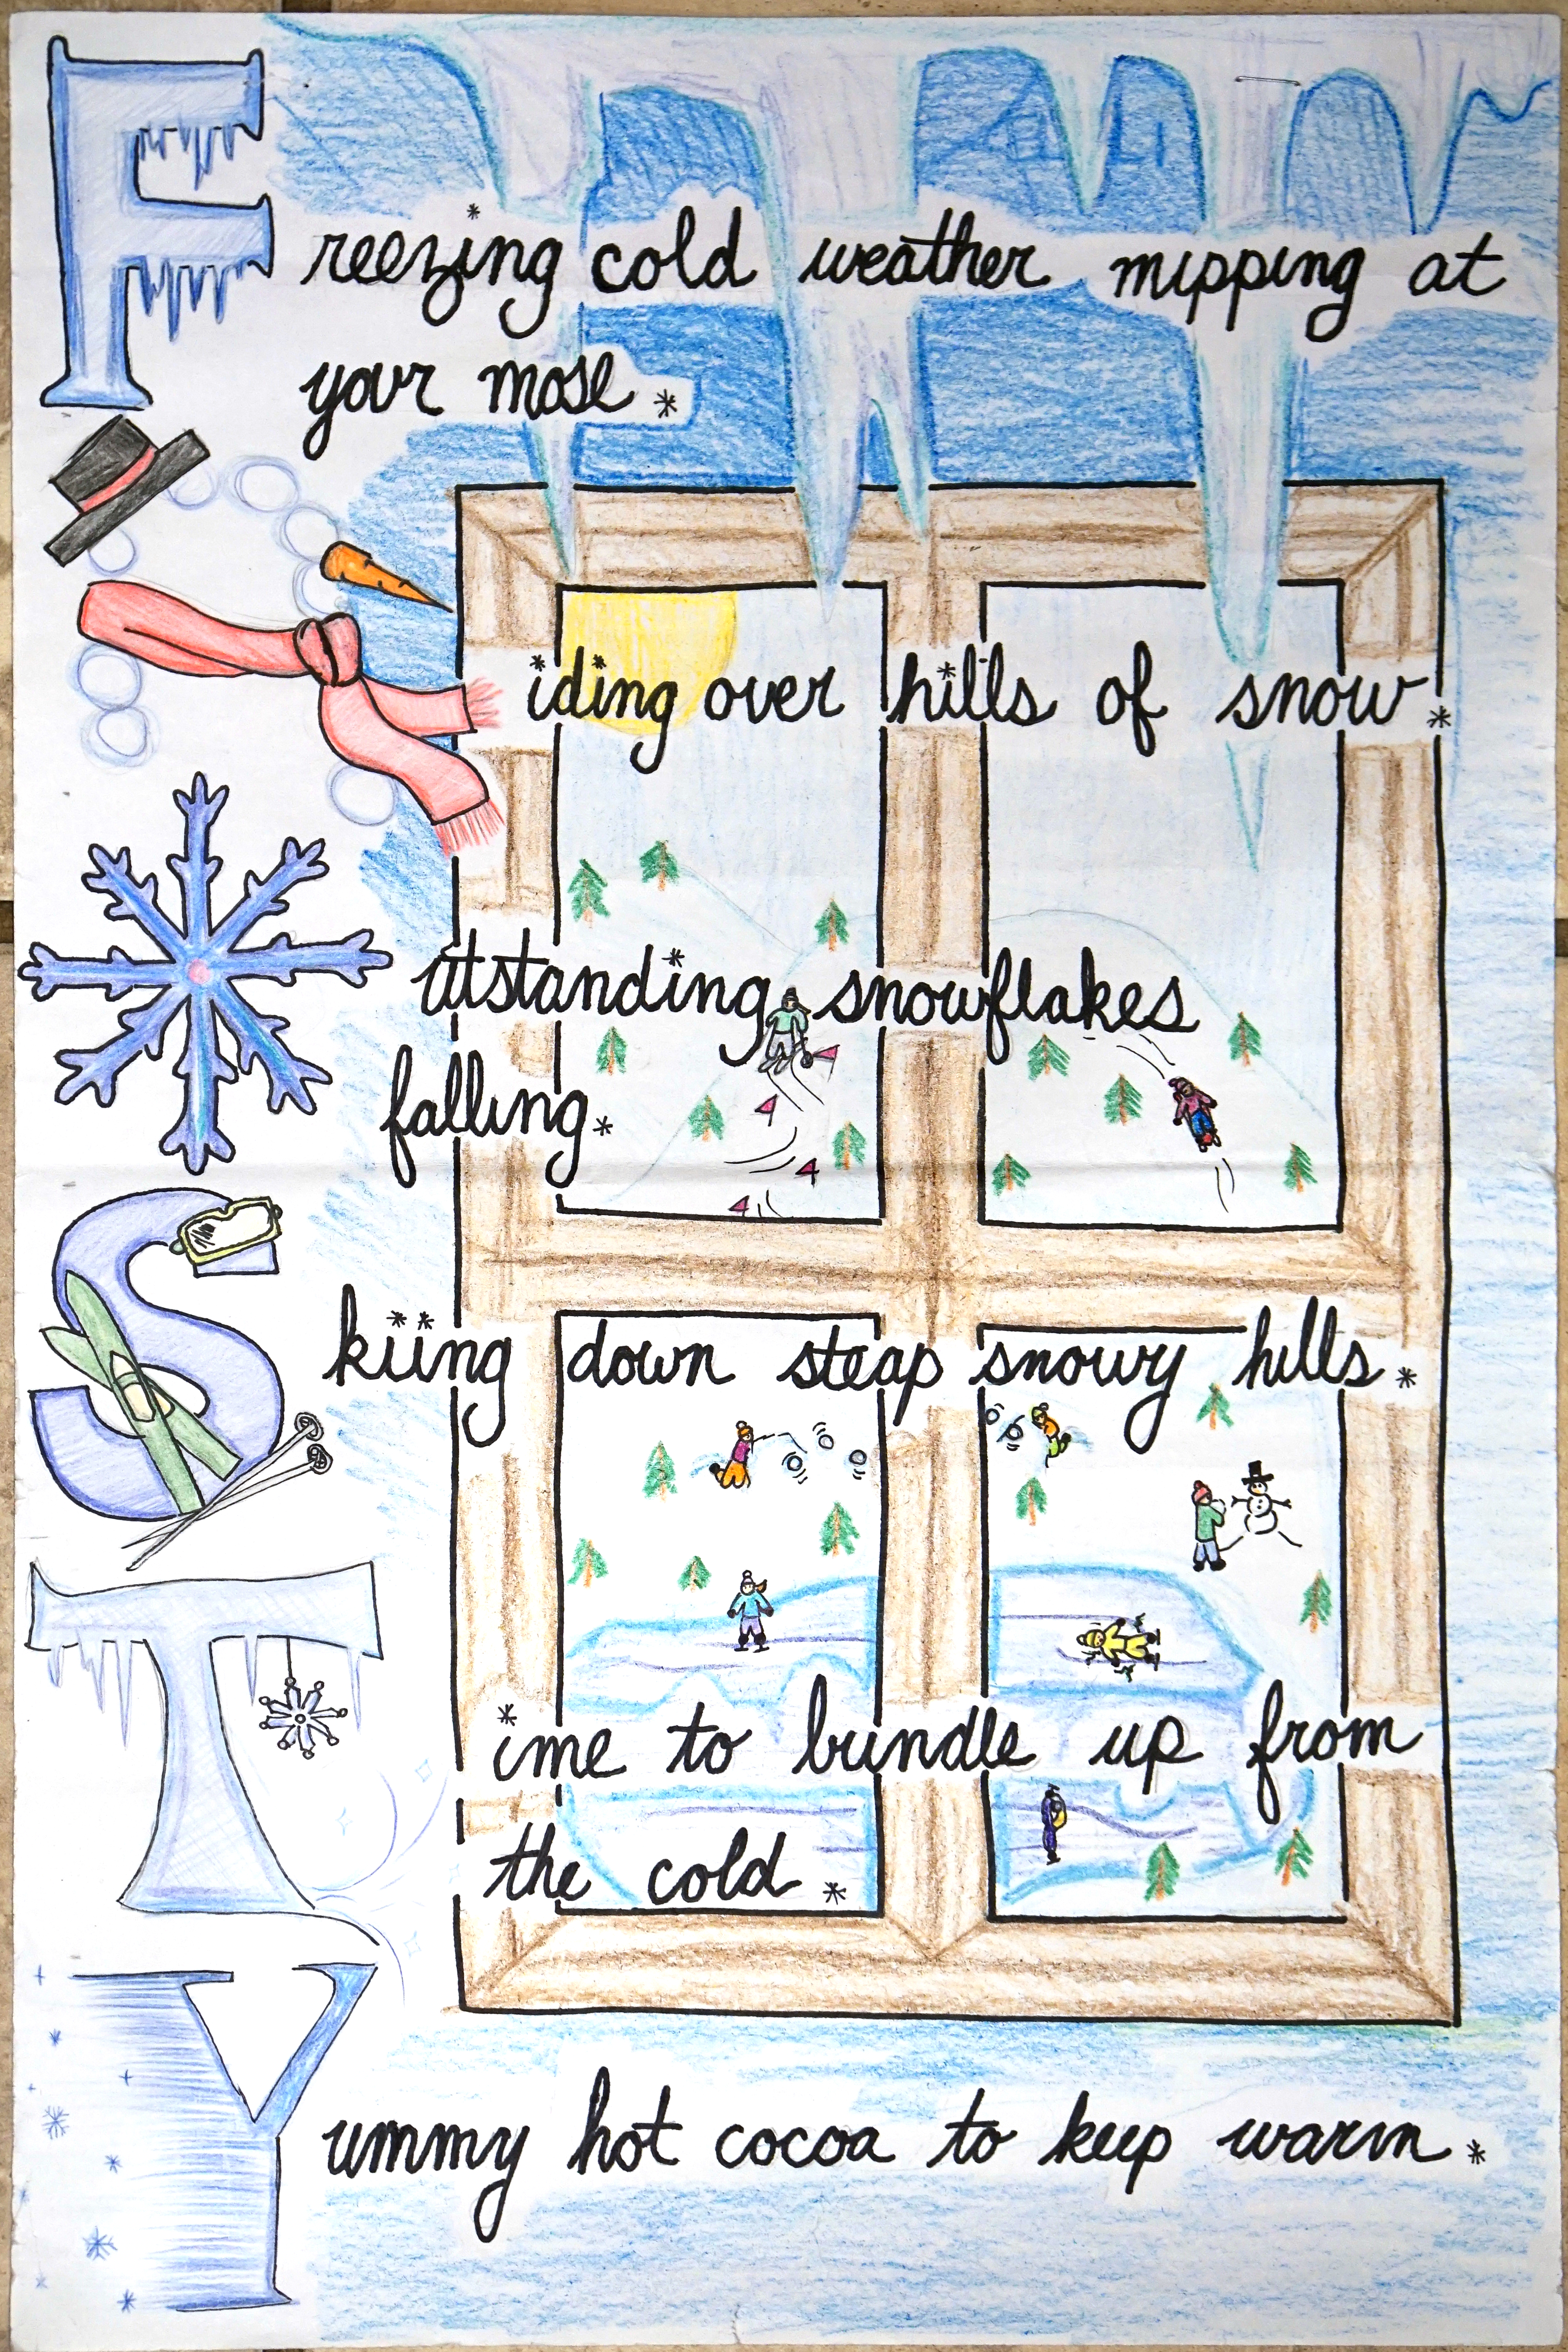 Freezing cold weather nipping at
your nose.
Riding over hills of snow.
Outstanding snowflakes
falling.
Skiing down steap snowy hills.
Time to bundle up from
the cold.
Yummy hot cocoa to keep warm.